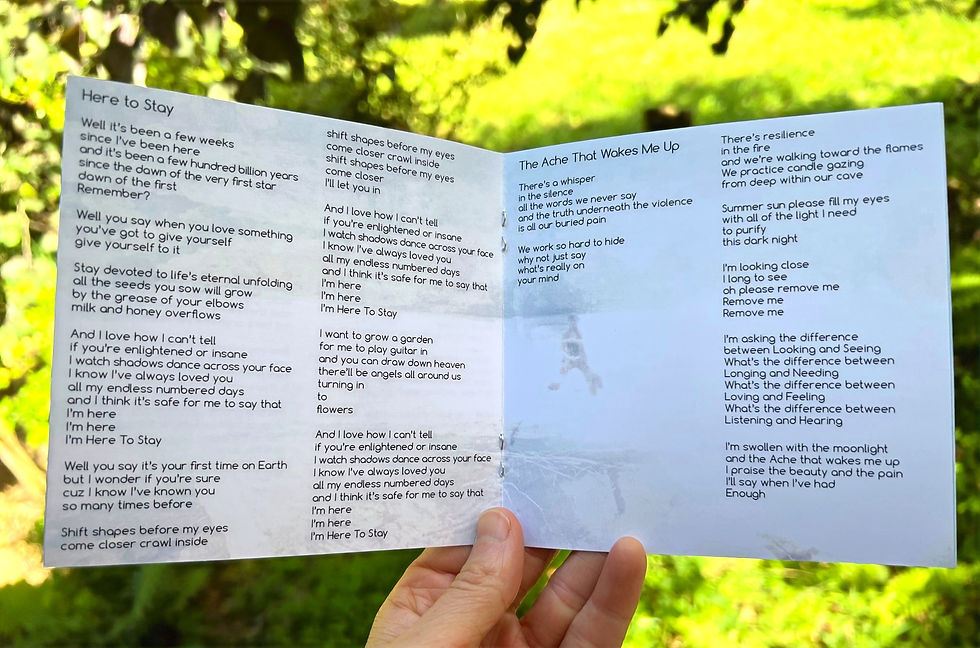 Here to Stay
Well it's been a few weeks
since I've been here
and it's been a few hundred billion years
since the dawn of the very first star
dawn of the first
Remember?
Well you say when you love something
you've got to give yourself
give yourself to it
Stay devoted to life's eternal unfolding
all the seeds you sow will grow
by the grease of your elbows
milk and honey overflows
And I love how I can't tell
if you're enlightened or insane
I watch shadows dance across your face
I know I've always loved you
all my endless numbered days
and I think it's safe for me to say that
I'm here
I'm here
I'm Here To Stay
Well you say it's your first time on Earth
but I wonder if you're sure
cuz I know I've known you
so many times before
Shift shapes before my eyes
come closer crawl inside
shift shapes before my eyes
come closer crawl inside
shift shapes before my eyes
come closer
I'll let you in
And I love how I can't tell
if you're enlightened or insane
I watch shadows dance across your face
I know I've always loved you
all my endless numbered days
and I think it's safe for me to say that
I'm here
I'm here
I'm Here To Stay
I want to grow a garden
for me to play guitar in
and you can draw down heaven
there'll be angels all around us
turning in
to
flowers
And I love how I can't tell
if you're enlightened or insane
I watch shadows dance across your face
I know I've always loved you
all my endless numbered days
and I think it's safe for me to say that
I'm here
I'm here
I'm Here To Stay
The Ache That Wakes Me Up
There's a whisper
in the silence
all the words we never say
and the truth underneath the violence
is all our buried pain
We work so hard to hide
why not just say
what's really on
your mind
There's resilience
in the fire
and we're walking toward the flames
We practice candle gazing
from deep within our cave
Summer sun please fill my eyes
with all of the light I need
to purify
this dark night
I'm looking close
I long to see
oh please remove me
Remove me
Remove me
I'm asking the difference
between Looking and Seeing
What's the difference between
Longing and Needing
What's the difference between
Loving and Feeling
What's the difference between
Listening and Hearing
I'm swollen with the moonlight
and the Ache that wakes me up
I praise the beauty and the pain
I'll say when I've had
Enough